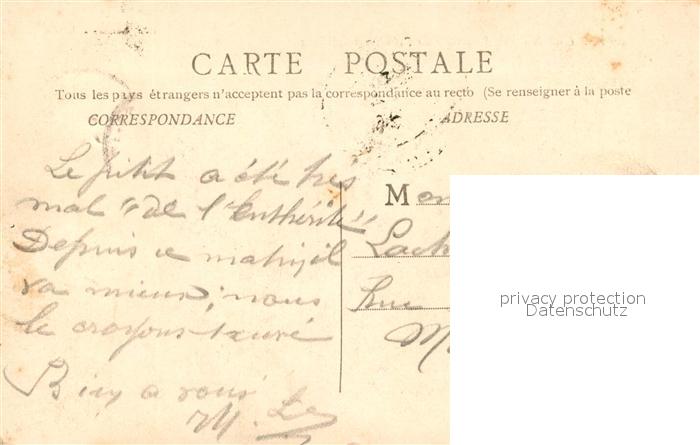 CARTE POSTALE
Tous les pays étrangers n'acceptent pas la correspondance au recto (Se renseigner à la poste
CORRESPONDANCE
ADRESSE
Le petit a été très
mal "de l'Enthérite"
Depuis ce matin, il
va mieux; nous
le croyons sauvé
Bien à vous
M.
M
Rue
privacy protection
Datenschutz